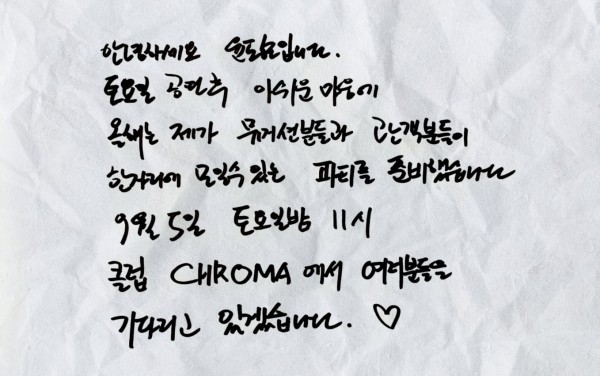 안녕하세요 윤탐입니다.
토요일 공연후 아쉬운 마음에
올해는 제가 뮤지션분들과 관객분들이
한자리에 모일수 있는 파티를 준비했습니다
9월 5일 토요일밤 11시
클럽 CHROMA에서 여러분들을
기다리고 있겠습니다. ♡